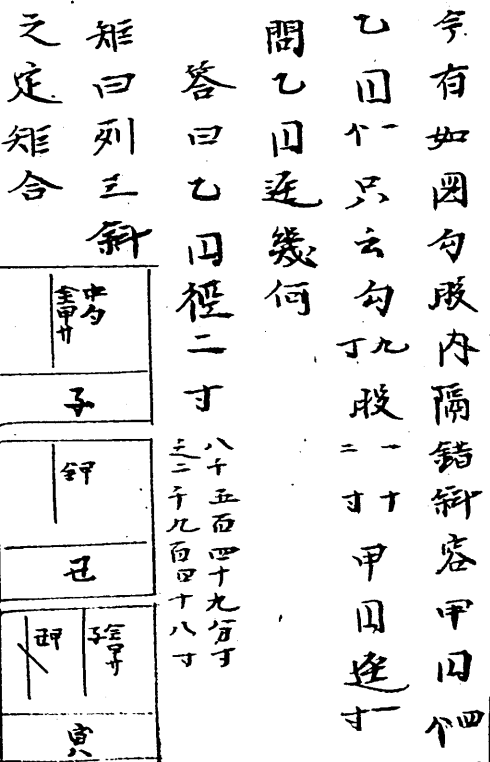 今有如図勾股内隔錯斜容甲円四个
乙円一个只云勾九寸股一十二寸甲円逕一寸
問乙円逕幾何
答曰乙円径二寸
八千五百四十九分寸
之二千九百四十八寸
矩曰列三斜
之定矩合
中勾
子
甲
丑
子
寅